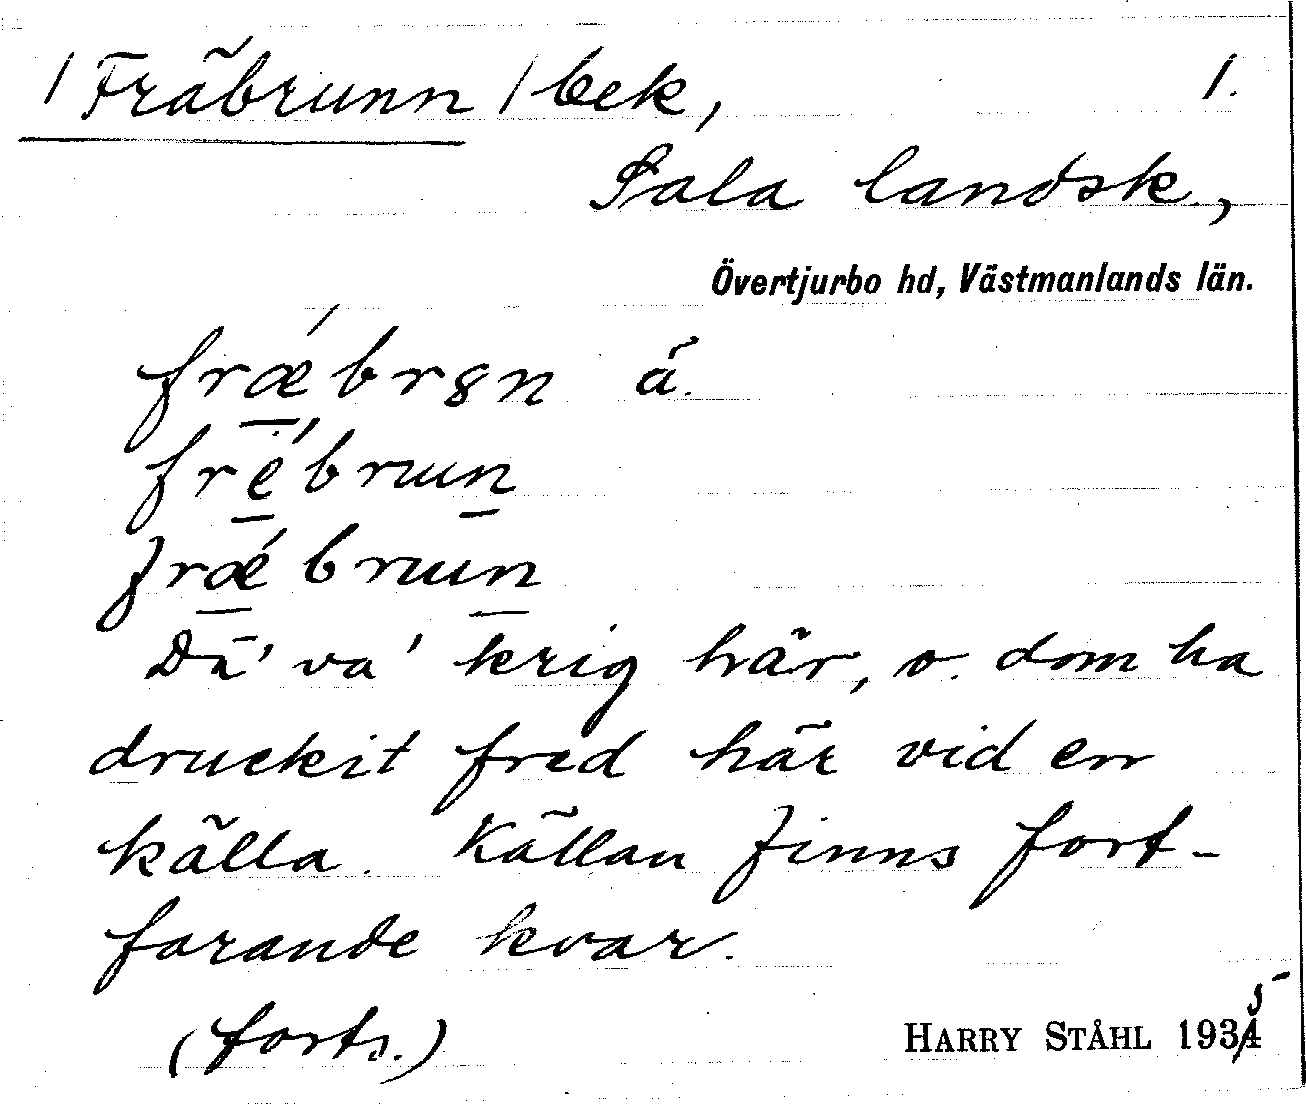 /Fräbrunn/bek, 1.
Sala landsk.,
Övertjurbo hd, Västmanlands län.
frǽbrsn ä.
frébruun
frǽbruun
Dä' va' krig här, o. dom ha
druckit fred här vid en
källa. Källan finns fort-
farande kvar.
(forts.)
HARRY STÅHL 1935